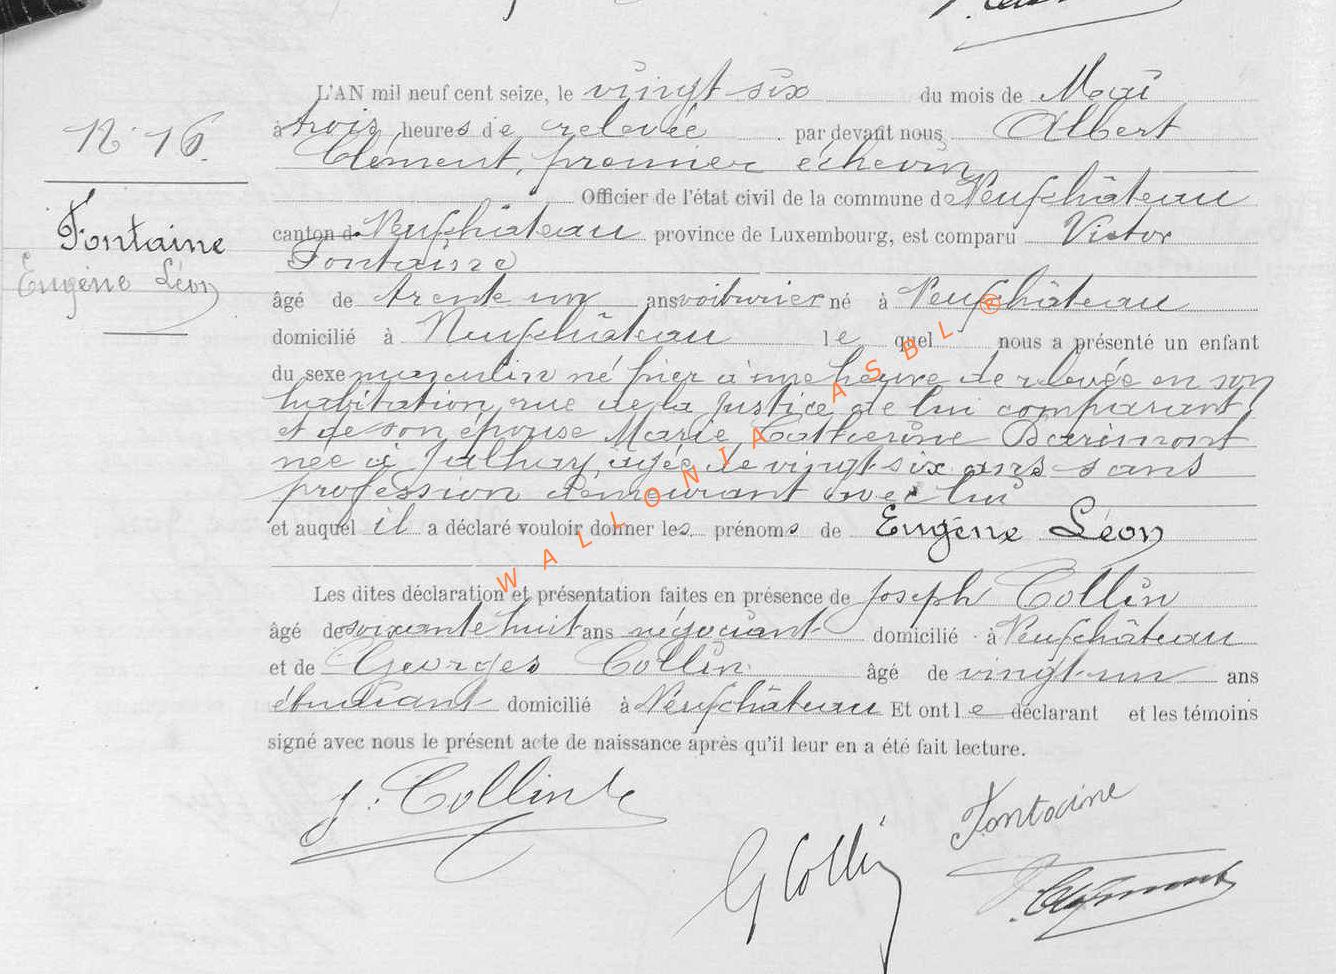 L'AN mil neuf cent seize, le vingt six du mois de Mai
N° 16.
à trois heures de relevée par devant nous Albert
Clément, premier échevin
Officier de l'état civil de la commune de Neufchâteau
Fontaine
Eugène Léon
canton de Neufchâteau province de Luxembourg, est comparu Victor
Fontaine
âgé de trente un ans voiturier né à Neufchâteau
domicilié à Neufchâteau le quel nous a présenté un enfant
du sexe masculin né hier à une heure de relevée en son
habitation, rue de la Justice, de lui comparant
et de son épouse Marie Catherine Darimont
née à Jalhay, agée de vingt six ans sans
profession demeurant avec lui
et auquel il a déclaré vouloir donner les prénoms de Eugène Léon
Les dites déclaration et présentation faites en présence de Joseph Collin
âgé de soixante huit ans négociant domicilié à Neufchâteau
et de Georges Collin âgé de vingt-un ans
étudiant domicilié à Neufchâteau Et ont le déclarant et les témoins
signé avec nous le présent acte de naissance après qu'il leur en a été fait lecture.
J. Collin
Fontaine
G Collin
WALLONIA ASBL ®